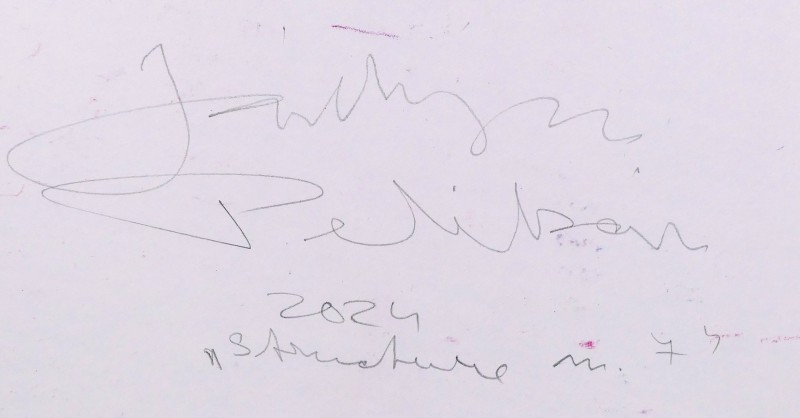 Pelikan
2024
„Structure n. 7"